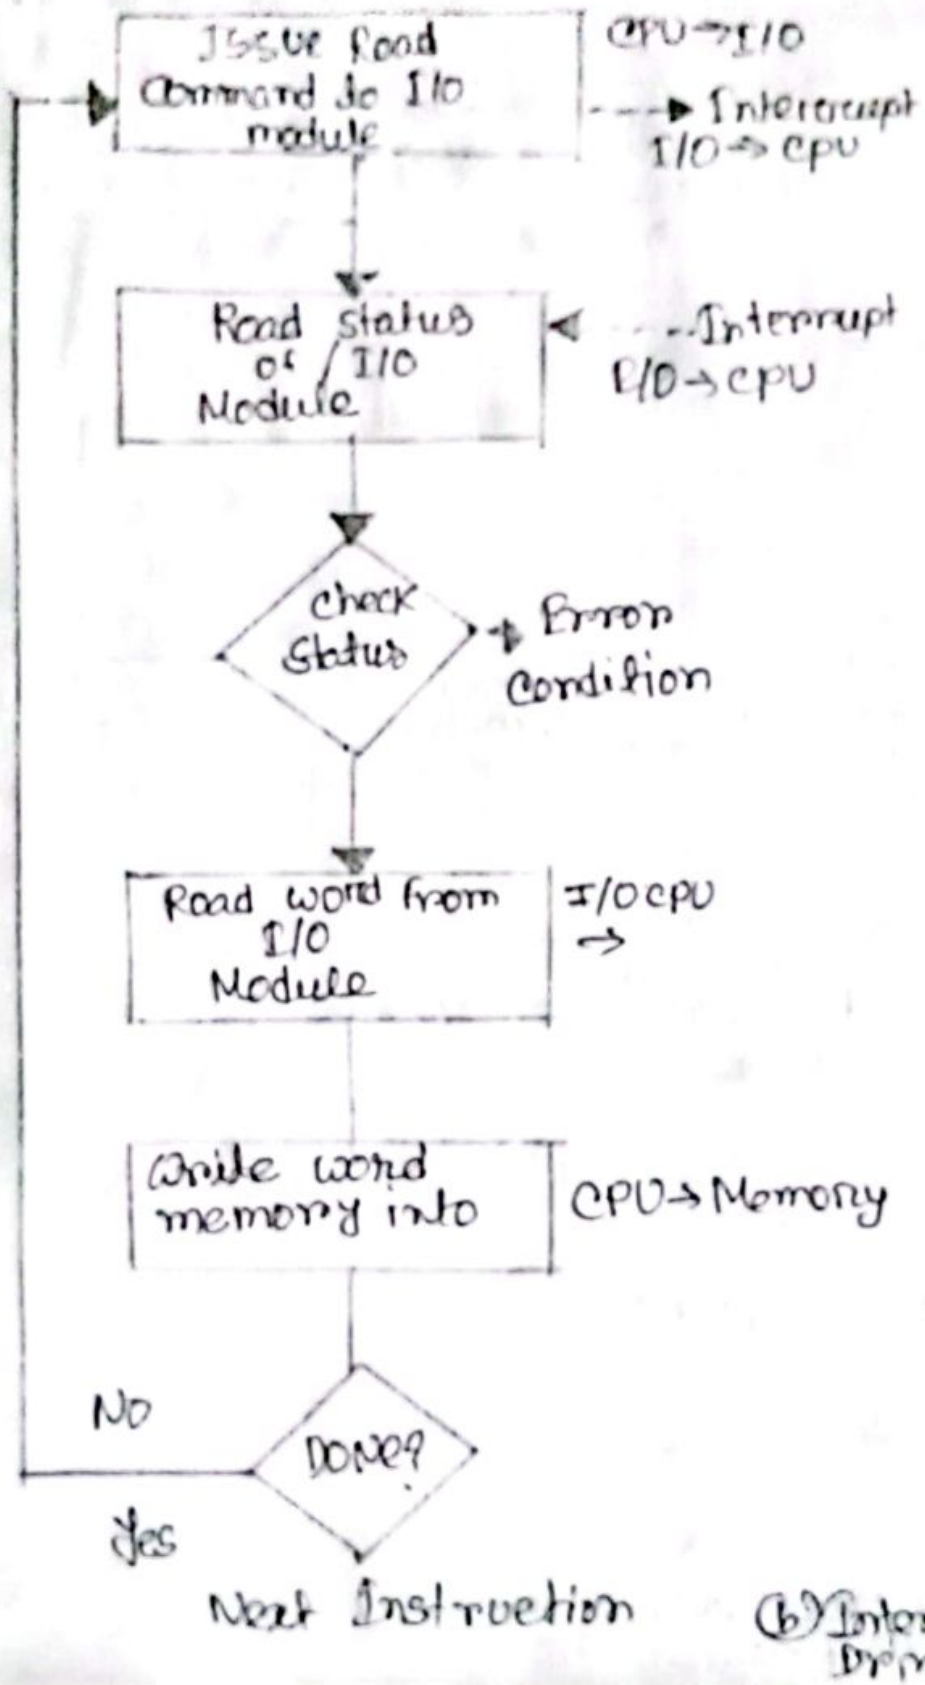 Issue Road
Command to I/O
module
CPU→I/O
Intercrupt
I/O→CPU
Road status
of I/O
Module
Interrupt
I/O→CPU
Check
Status
Error
Condition
Road word from
I/O
Module
I/O CPU
→
Write word
memory into
CPU→Memory
No
DONE?
Yes
Next Instruction
(b) Inter
Dri